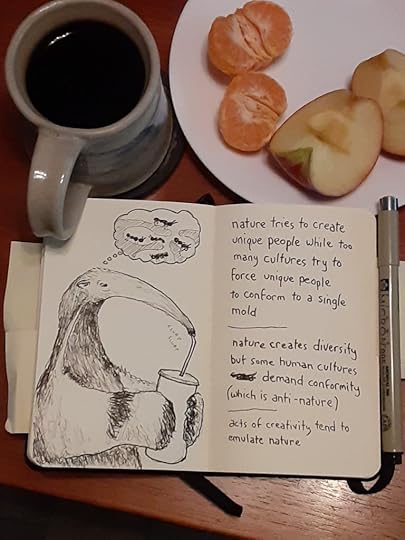 nature tries to create
unique people while too
many cultures try to
force unique people
to conform to a single
mold
nature creates diversity
but some human cultures
demand conformity
(which is anti-nature)
acts of creativity tend to
emulate nature
slurp
slurp